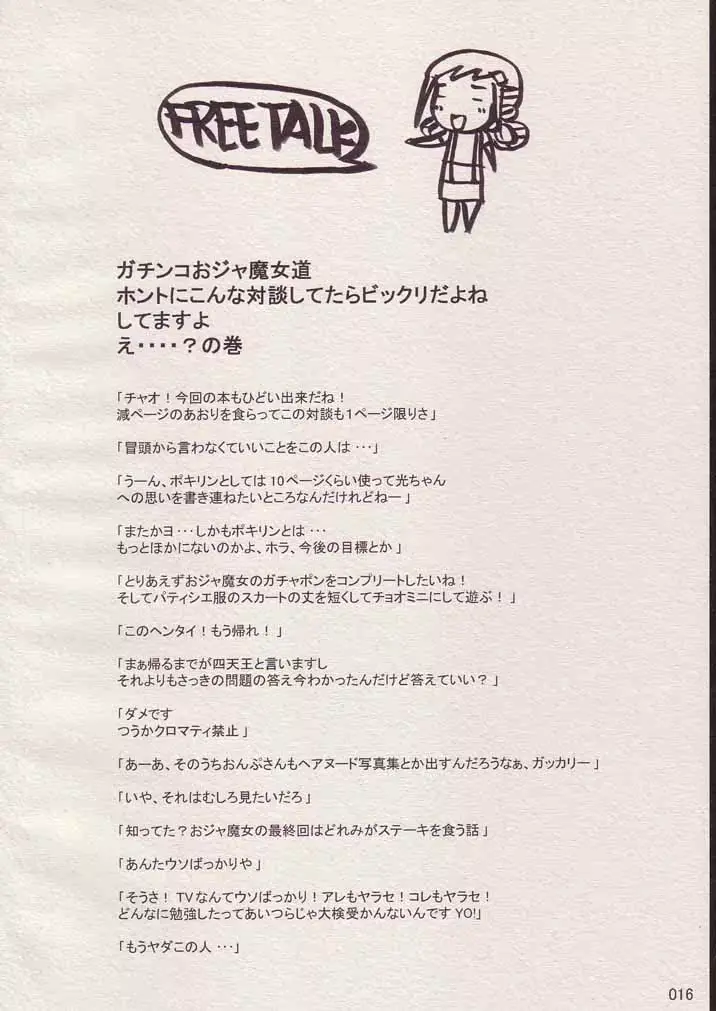 FREE TALK
ガチンコおジャ魔女道
ホントにこんな対談してたらビックリだよね
してますよ
え・・・・？の巻
「チャオ！今回の本もひどい出来だね！
減ページのあおりを食らってこの対談も1ページ限りさ」
「冒頭から言わなくていいことをこの人は・・・」
「うーん、ポキリンとしては10ページくらい使って光ちゃん
への思いを書き連ねたいところなんだけれどねー」
「またかヨ・・・しかもポキリンとは・・・
もっとほかにないのかよ、ホラ、今後の目標とか」
「とりあえずおジャ魔女のガチャポンをコンプリートしたいね！
そしてパティシエ服のスカートの丈を短くしてチョオミニにして遊ぶ！」
「このヘンタイ！もう帰れ！」
「まぁ帰るまでが四天王と言いますし
それよりもさっきの問題の答え今わかったんだけど答えていい？」
「ダメです
つうかクロマティ禁止」
「あーあ、そのうちおんぷさんもヘアヌード写真集とか出すんだろうなぁ、ガッカリー」
「いや、それはむしろ見たいだろ」
「知ってた？おジャ魔女の最終回はどれみがステーキを食う話」
「あんたウソばっかりや」
「そうさ！TVなんてウソばっかり！アレもヤラセ！コレもヤラセ！
どんなに勉強したってあいつらじゃ大検受かんないんですYO!」
「もうヤダこの人・・・」
016